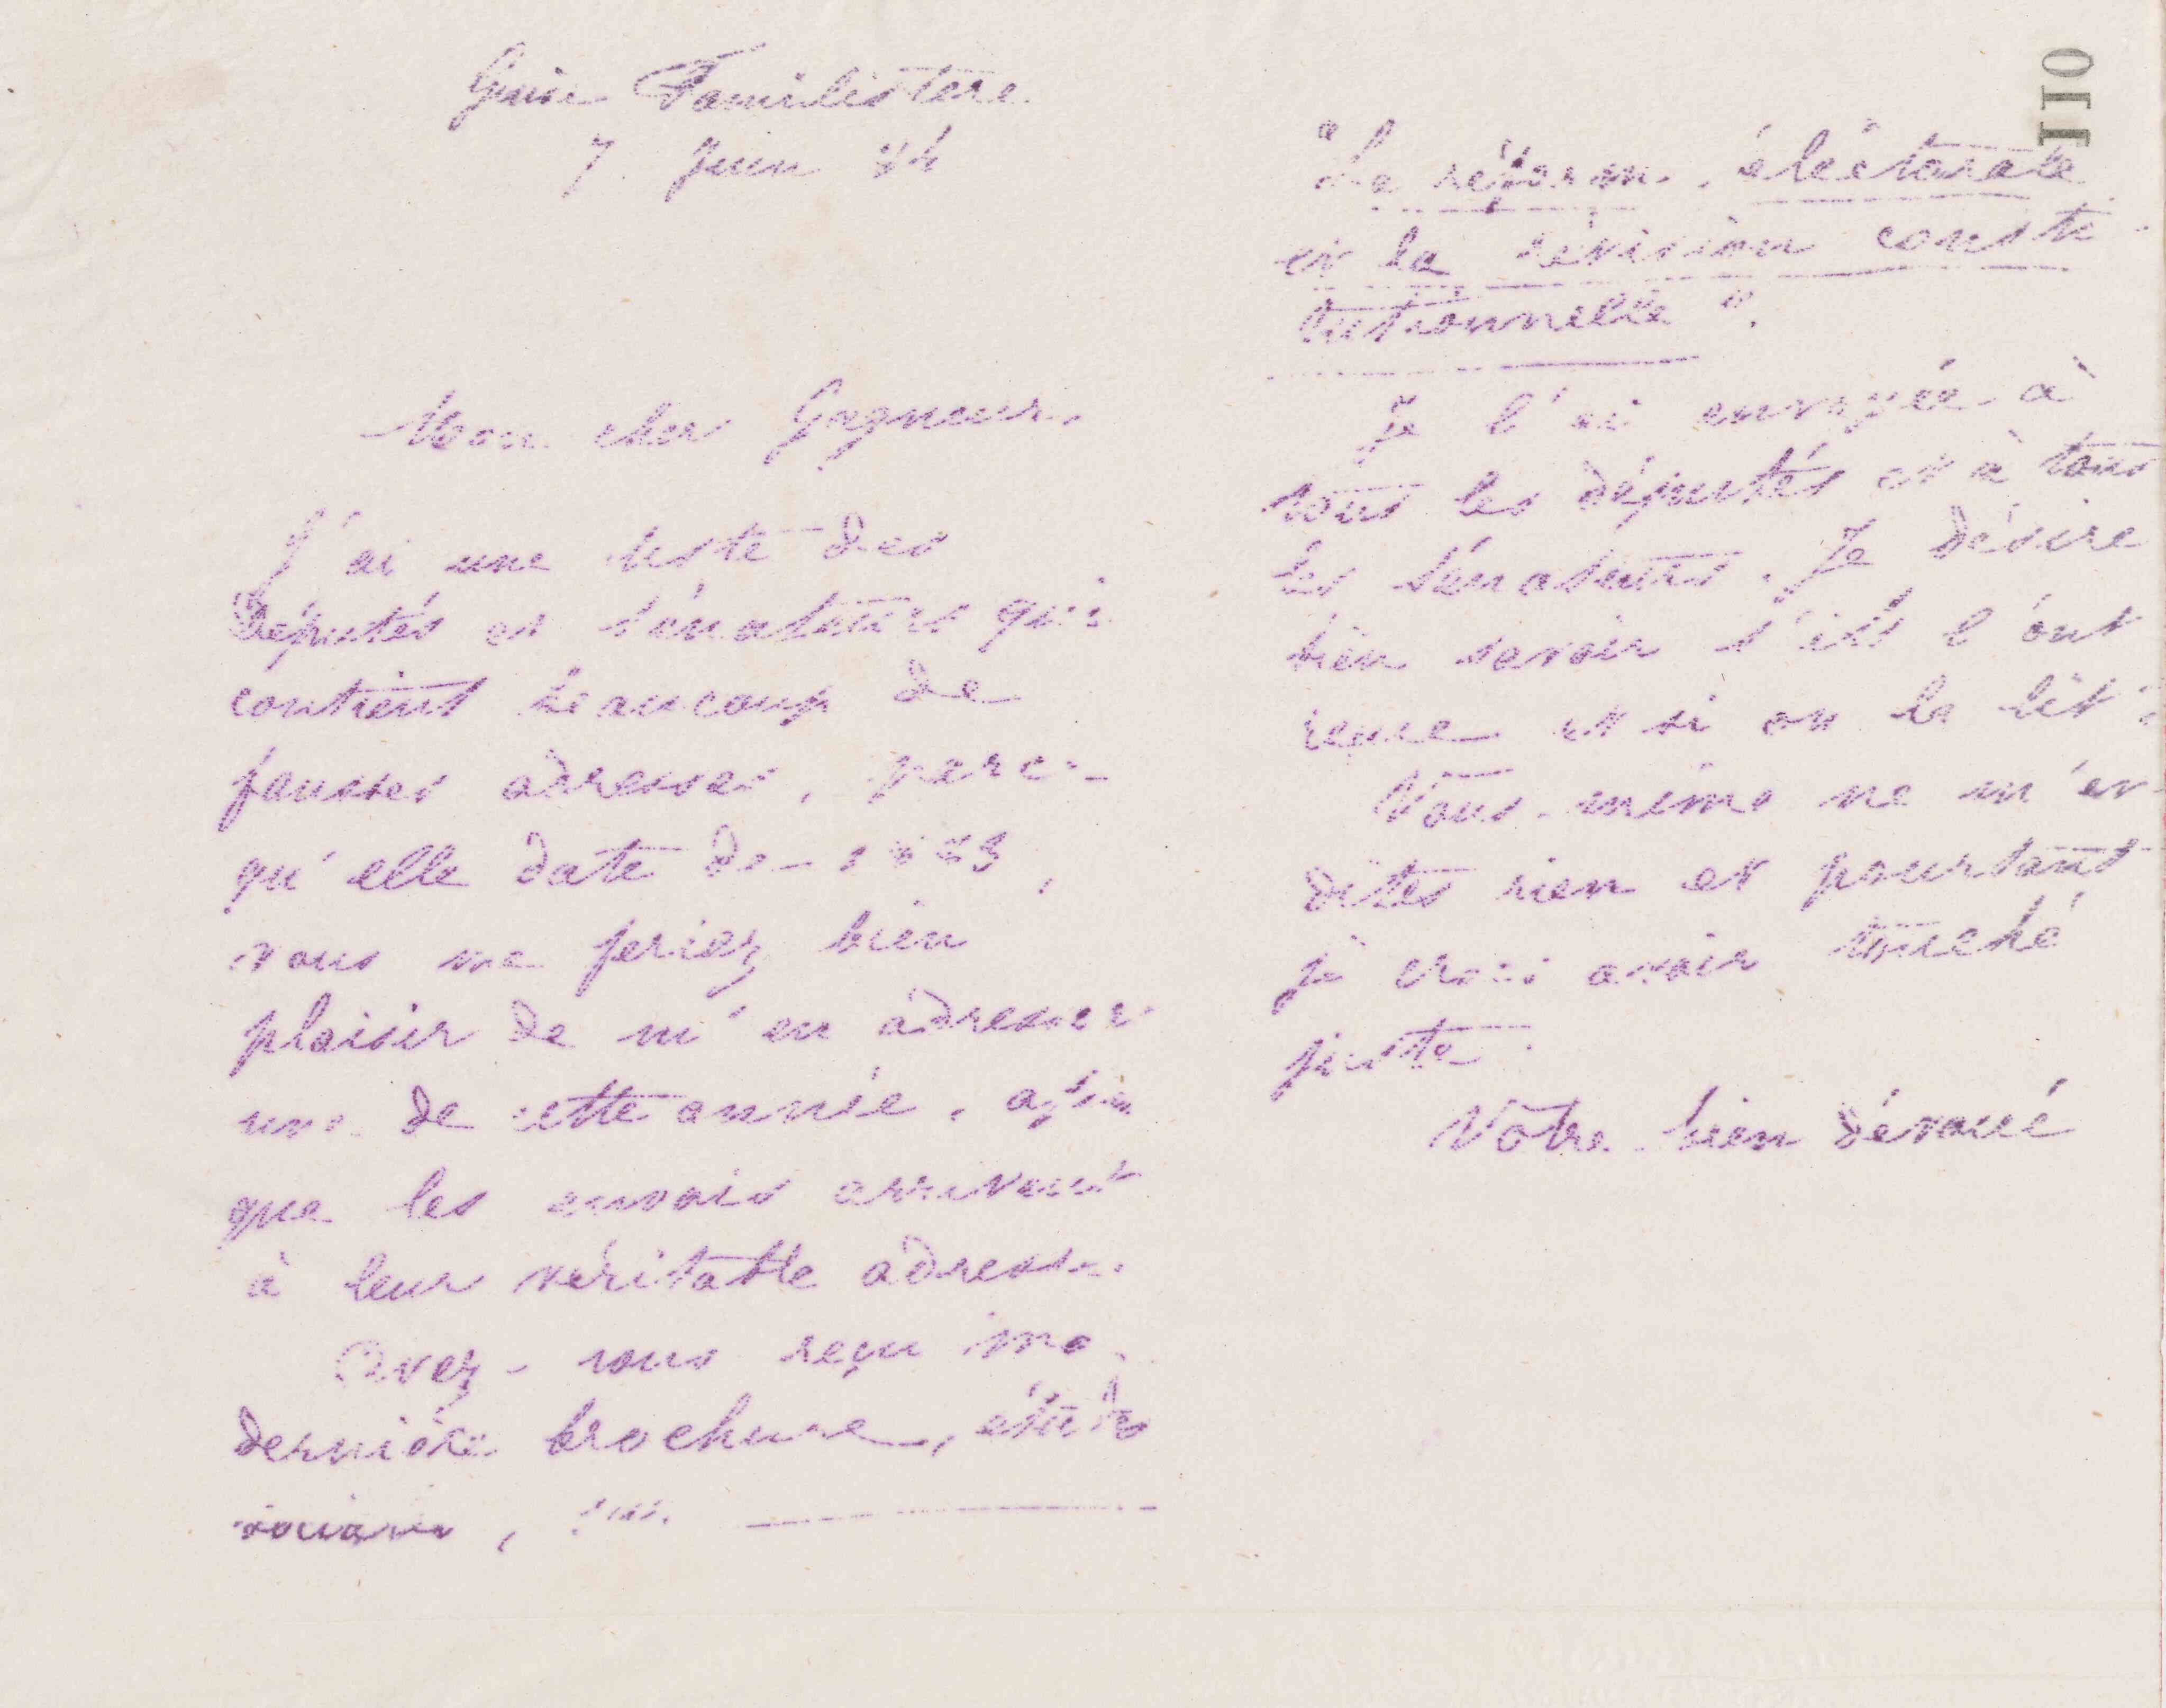 Guise Familistère
7 Juin 84
Mon cher Gagneur,
J'ai une liste des
députés et sénateurs qui
contient beaucoup de
fausses adresses, parce
qu'elle date de 1883,
vous me feriez bien
plaisir de m'en adresser
une de cette année, afin
que les envois arrivent
à leur véritable adresse.
Avez-vous reçu ma
dernière brochure, étude
sociale,
110
"La réforme électorale
et la révision consti
tutionnelle".
Je l'ai envoyée à
tous les députés et à tous
les sénateurs. Je désire
bien savoir s'ils l'ont
reçue et si on la lit.
Vous-même ne m'en
dites rien et pourtant
je crois avoir touché
juste.
Votre bien dévoué